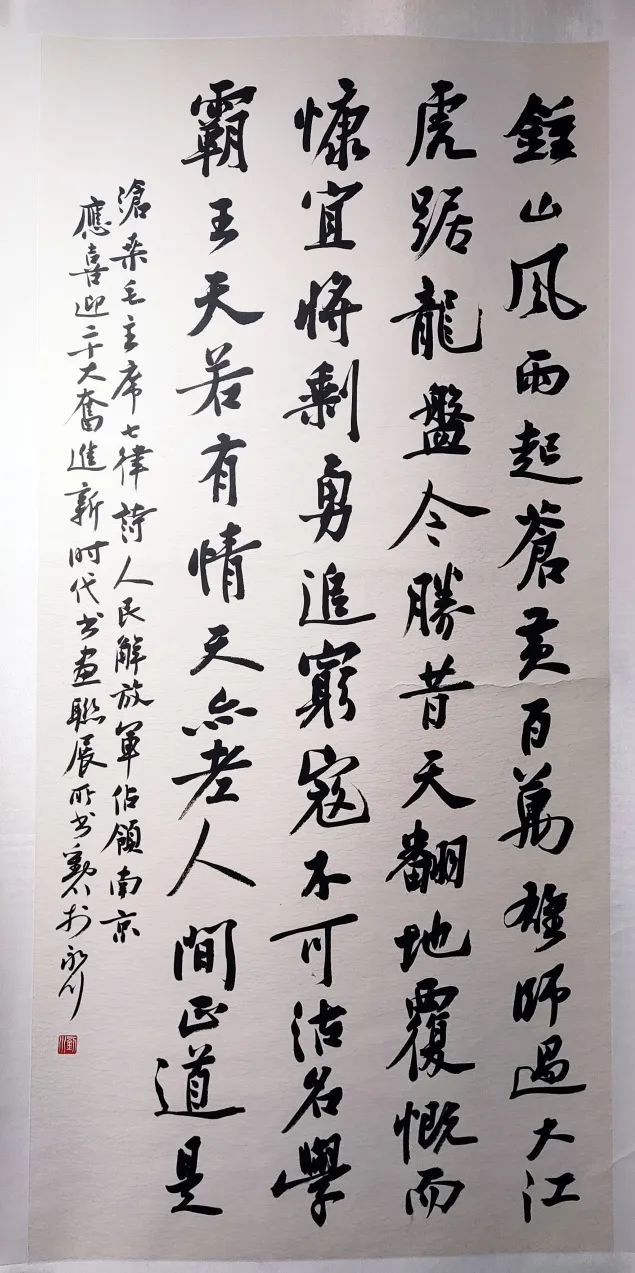 鍾山風雨起蒼黃百萬雄師過大江
虎踞龍盤今勝昔天翻地覆慨而
慷宜將剩勇追窮寇不可沽名學
霸王天若有情天亦老人間正道是
滄桑毛主席七律詩人民解放軍佔領南京
應喜迎二十大奮進新时代书画聯展所书於永川